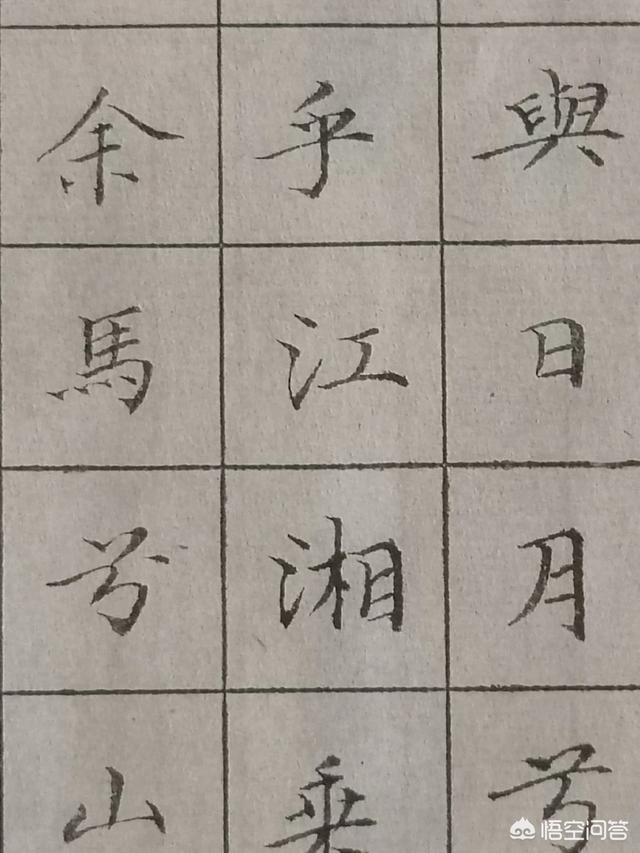 與日月兮
乎江湘乗
余馬兮山
悟空问答